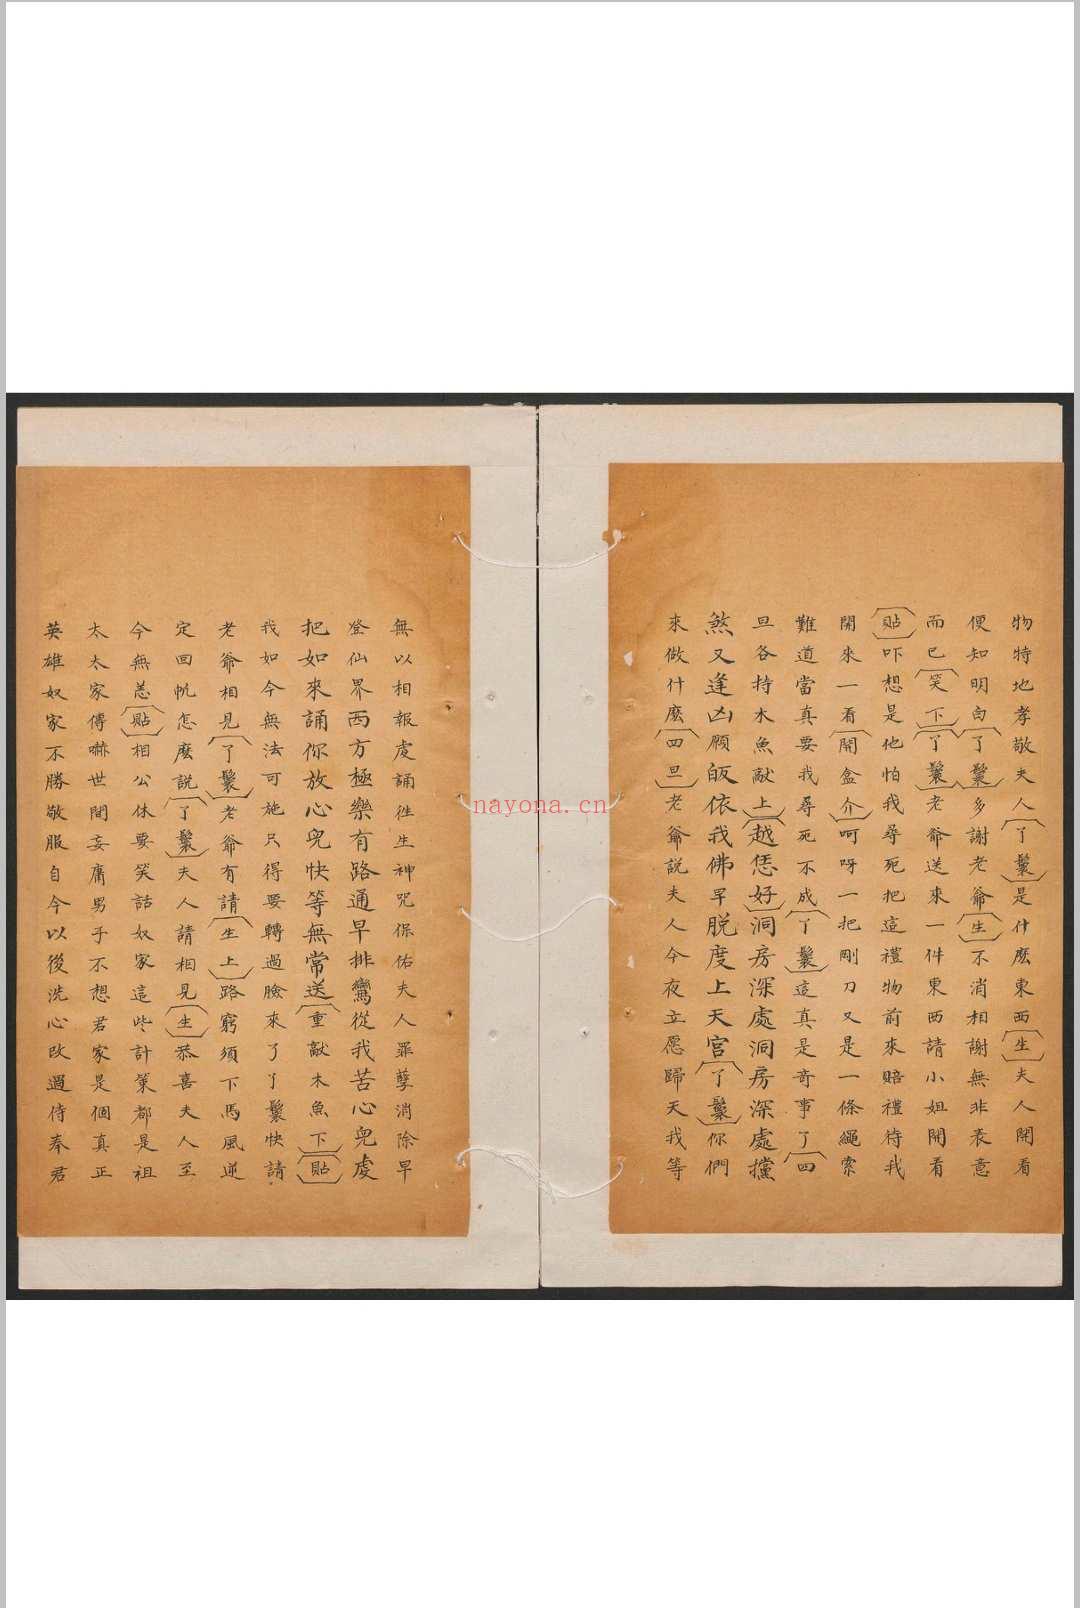 物特地孝敬夫人(丫鬟)是什麽東西(生)夫人開看
便知明白(丫鬟)多謝老爺(生)不消相謝無非表意
而已(笑下)(丫鬟)老爺送來一件東西請小姐開看
(貼)吓想是他怕我尋死把這禮物前來賠禮待我
開來一看(開盒介)呵呀一把剛刀又是一條繩索
難道當真要我尋死不成(丫鬟)這真是奇事了(四
旦各持木魚敲上)(越恁好)洞房深處洞房深處攩
煞又逢凶願皈依我佛早脫度上天宮(丫鬟)你們
來做什麽(四旦)老爺說夫人今夜立愿歸天我等
無以相報虔誦徃生神咒保佑夫人罪孽消除早
登仙界西方極樂有路通早排鸞從我苦心兒虔
把如來誦你放心兒快等無常送(重敲木魚下)(貼)
我如今無法可施只得要轉過臉來了丫鬟快請
老爺相見(丫鬟)老爺有請(生上)路窮須下馬風逆
定回帆怎麽說(丫鬟)夫人請相見(生)恭喜夫人至
今無恙(貼)相公休要笑話奴家這些計策都是祖
太太家傳嚇世間妄庸男子不想君家是個真正
英雄奴家不勝敬服自今以後洗心改過侍奉君
nayona.cn